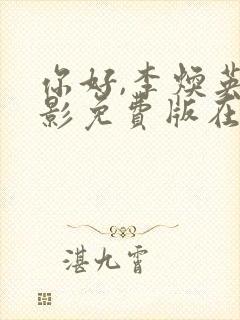 你好,李焕英
影免费版在
湛九霄